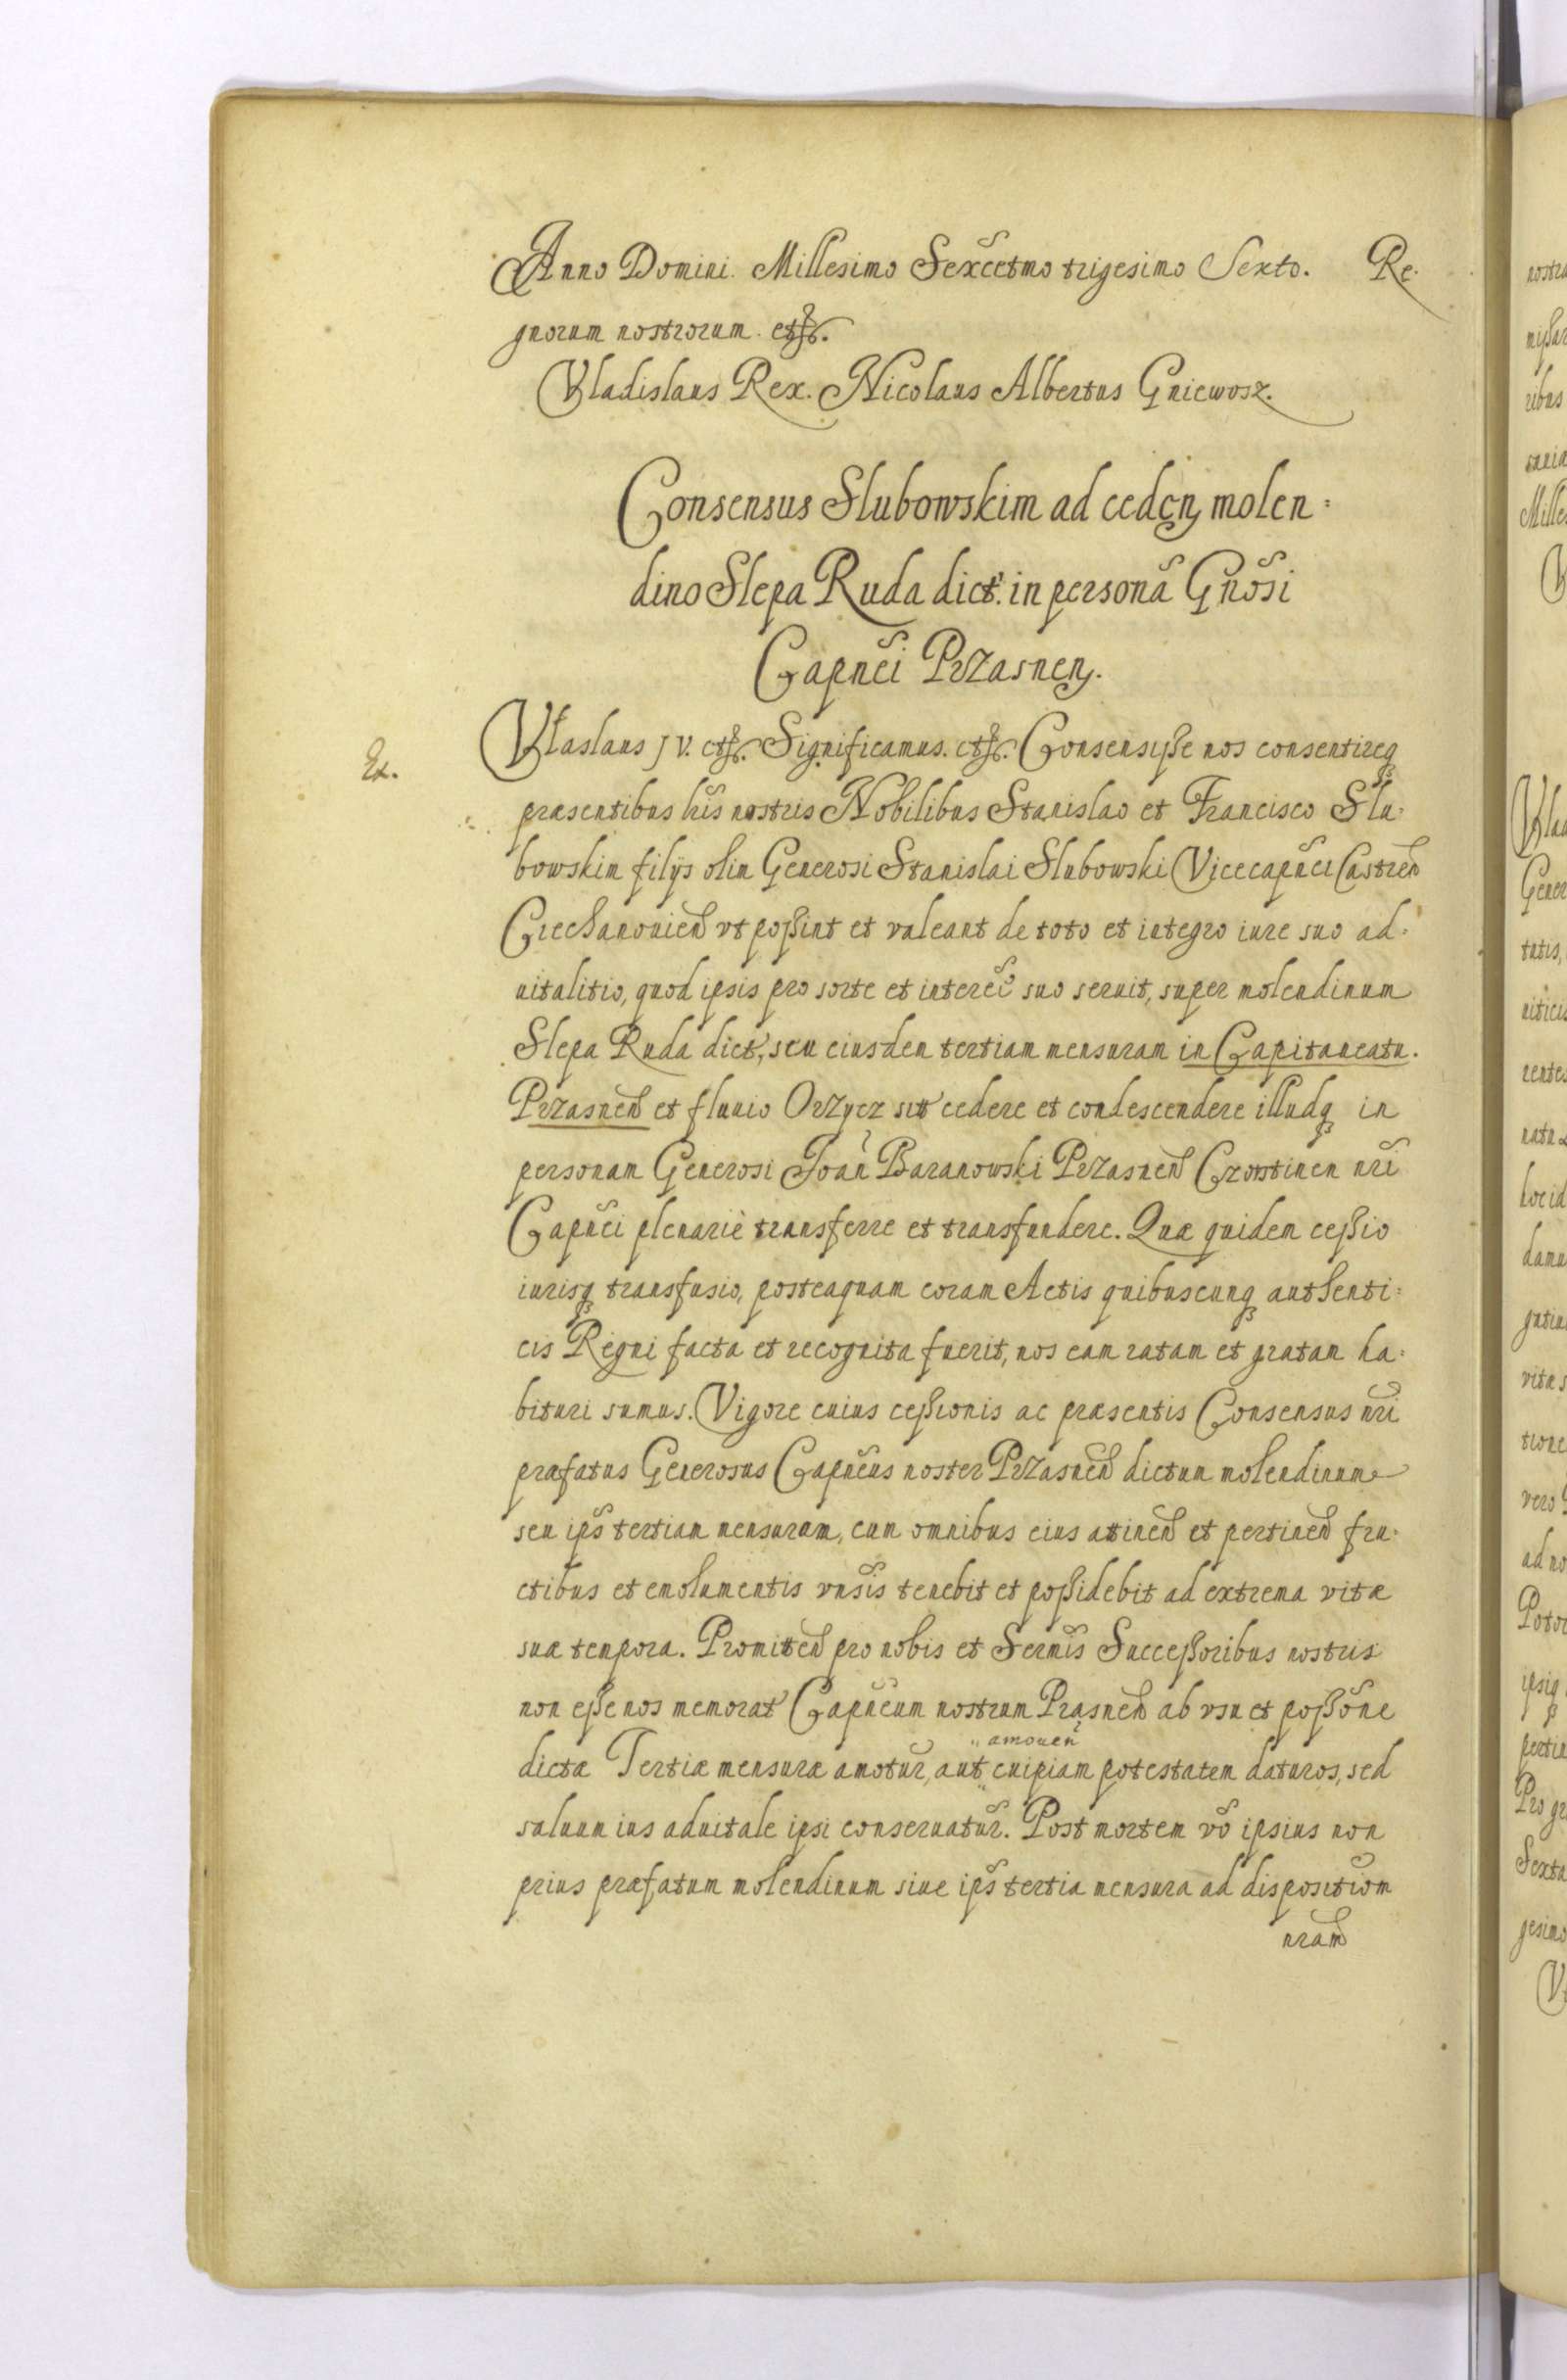 Anno Domini. Millesimo Sexcetmo trigesimo Sexto. Re-
gnorum nostrorum. etc.
Vladislaus Rex. Nicolaus Albertus Gniewosz.
Consensus Slubowskim ad ceden molen=
dino Slepa Ruda dict. in persona Gnosi
Capnei Przasnen.
Ex.
Vlaslaus IV. etc. Significamus. etc. Consensisse nos consentireq
præsentibus lris nostris Nobilibus Stanislao et Francisco Slu-
bowskim filÿs olim Generosi Stanislai Slubowski Vicecapnei Castren
Ciechanouien vt possint et valeant de toto et integro iure suo ad-
uitalitio, quod ipsis pro sorte et interee suo seruit, super molendinum
Slepa Ruda dict, seu eiusdem tertiam mensuram in Capitaneatu.
Przasnen et fluuio Orzycz sit cedere et condescendere illudq in
personam Generosi Joan Baranowski Przasnen Crostinen nri
Capnei plenariè transferre et transfundere. Quæ quidem cessio
iurisq transfusio, posteaquam coram Actis quibuscunq authenti=
cis Regni facta et recognita fuerit, nos eam ratam et gratam ha-
bituri sumus. Vigore cuius cessionis ac præsentis Consensus nri
præfatus Generosus Capneus noster Przasnen dictum molendinum
seu ips tertiam mensuram, cum omnibus eius attinen et pertinen fru-
ctibus et emolumentis vnsis tenebit et possidebit ad extrema vitæ
suæ tempora. Promitten pro nobis et Sermis Successoribus nostris
non esse nos memorat Capneum nostrum Prasnen ab vsu et possone
dictæ Tertiæ mensuræ amotur, aut amouen cuipiam potestatem daturos, sed
saluum ius aduitale ipsi conseruatur. Post mortem vo ipsius non
prius præfatum molendinum siue ips tertia mensura ad dispositiom
nram